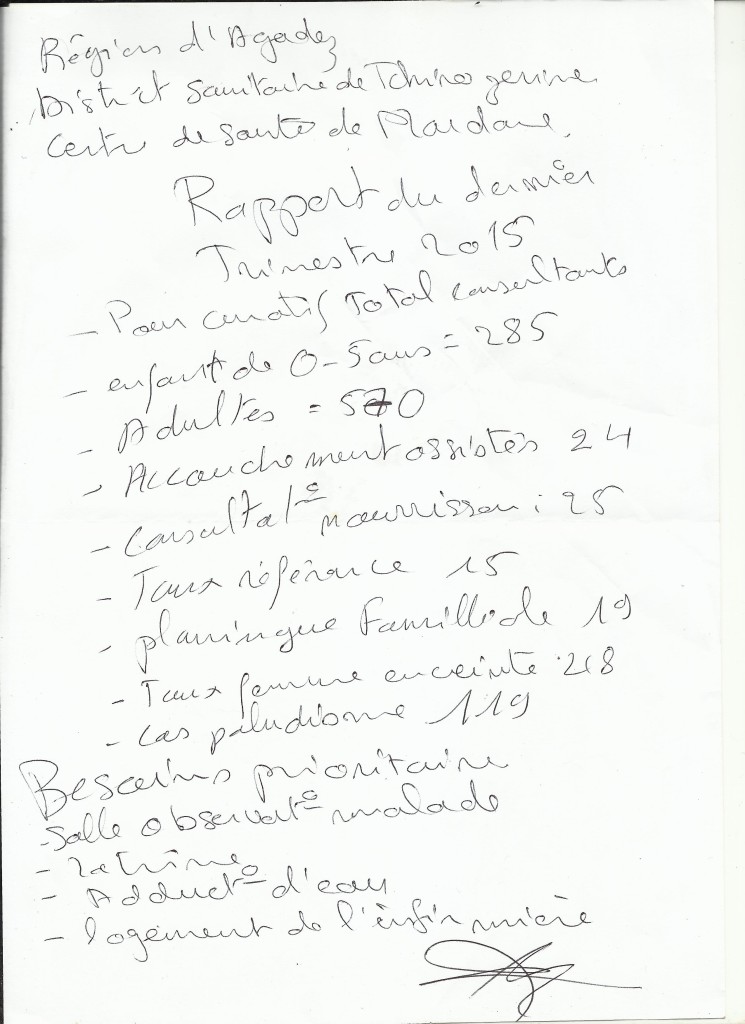 Région d'Agadez
District sanitaire de Tchirozerine
Centre de santé de Mardane.
Rapport du dernier
Trimestre 2015
- Pour curatif Total consultants
- enfant de 0-5ans = 285
- Adultes = 570
- Accouchement assistés 24
- Consultat° nourrisson : 25
- Taux référence 15
- planningue Familliale 19
- Taux femme enceinte 28
- Cas paludisme 119
Besoins prioritaire
- Salle observat° malade
- Latrine
- Adduct° d'eau
- logement de l'infirmière